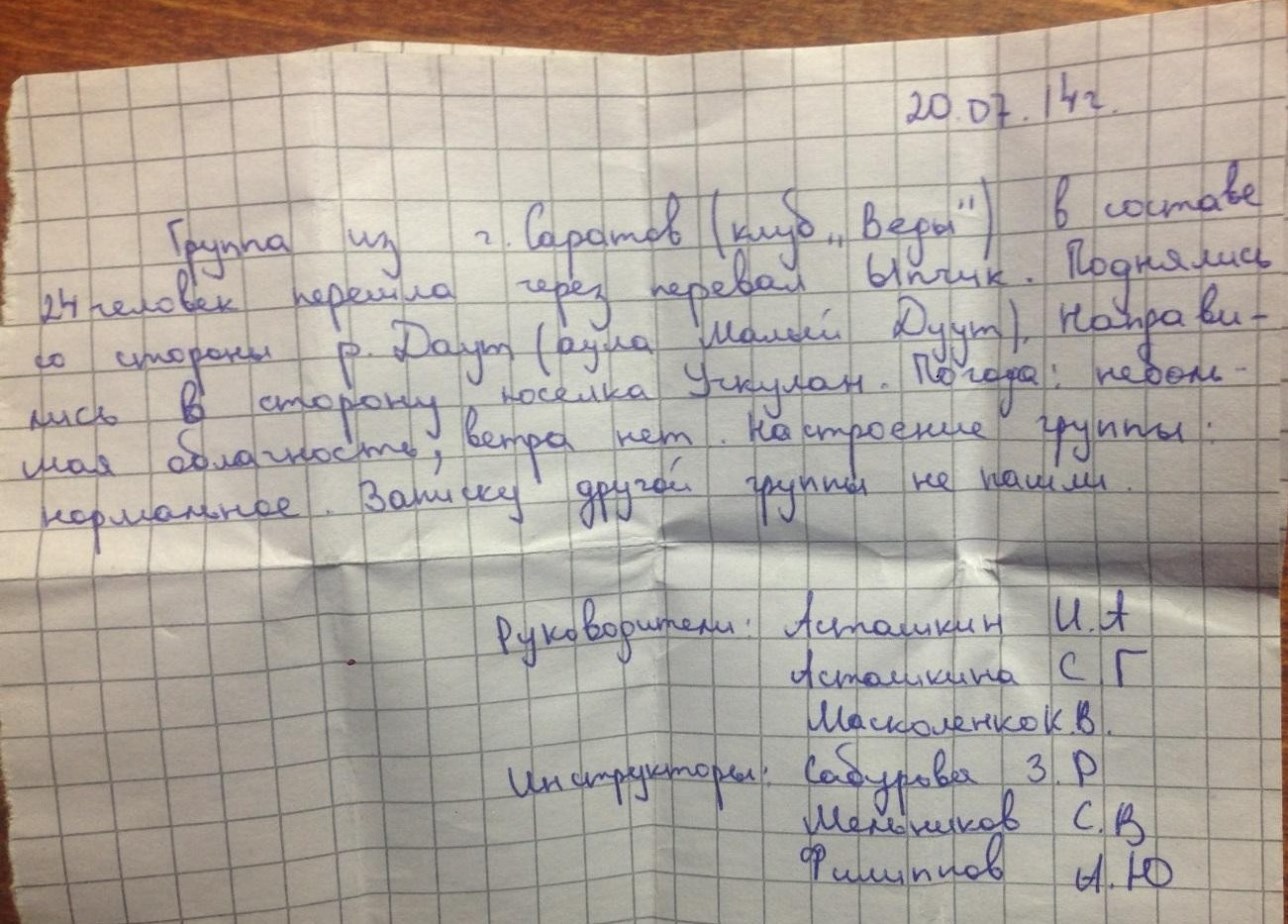 20.07.14г.
Группа из г. Саратов (клуб „Веды") в составе
24 человек перешла через перевал Ыпчик. Поднялись
со стороны р. Даут (аула Малый Дуут). Направи-
лись в сторону поселка Учкулан. Погода: неболь-
шая облачность, ветра нет. Настроение группы:
нормальное. Записку другой группы не нашли.
Руководители: Асташкин И.А
Асташкина С Г
Масколенко К.В.
Инструкторы: Сабурова З.Р
Мельников С.В
Филиппов А.Ю